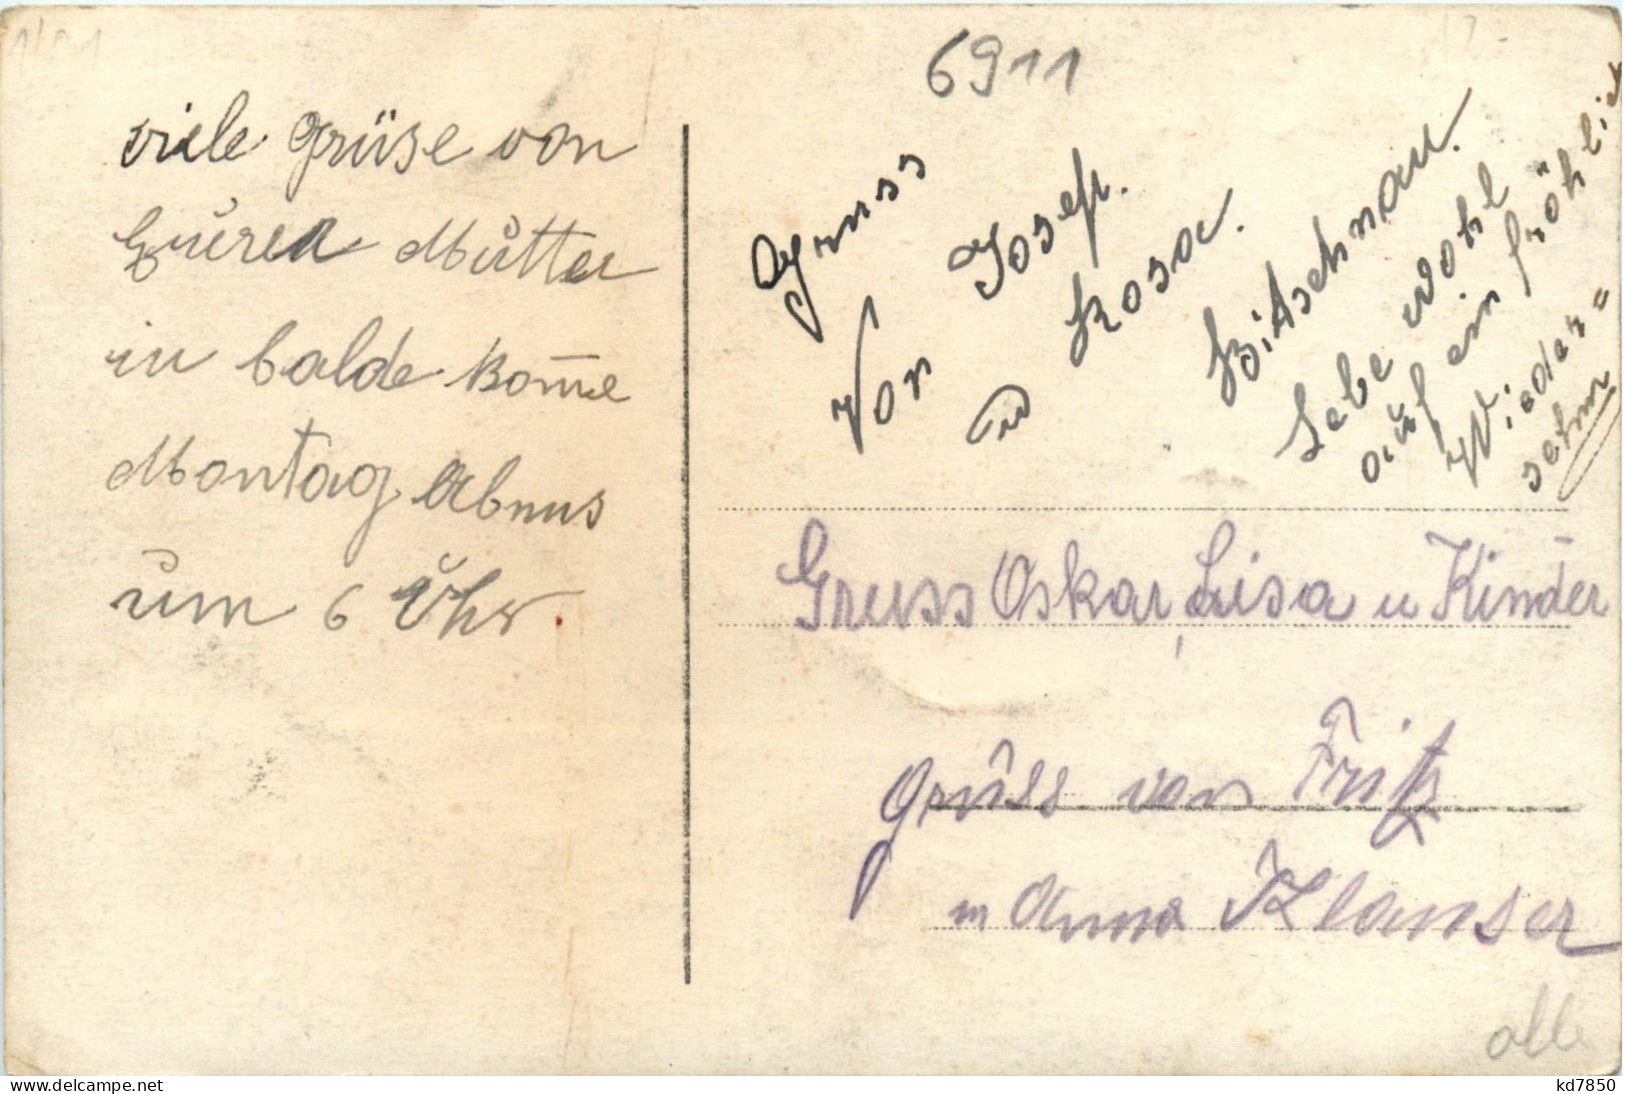 6911
viele Grüse von
Eurer Mutter
in balde kom̄e
Montag Abnus
um 6 Uhr.
Gruss
Von Josef.
u Rosa.
Bitschnau.
Lebe wohl
auf ein fröhlich
Wieder=
sehn
Gruss Oskar, Lisa u Kinder
Grüss von Fritz
u Anna Klanser
alle
kd7850